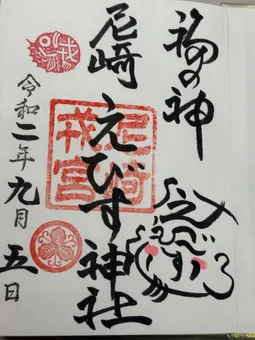 福の神
尼崎えびす神社
尼崎
戎宮
えびす
令和二年九月五日